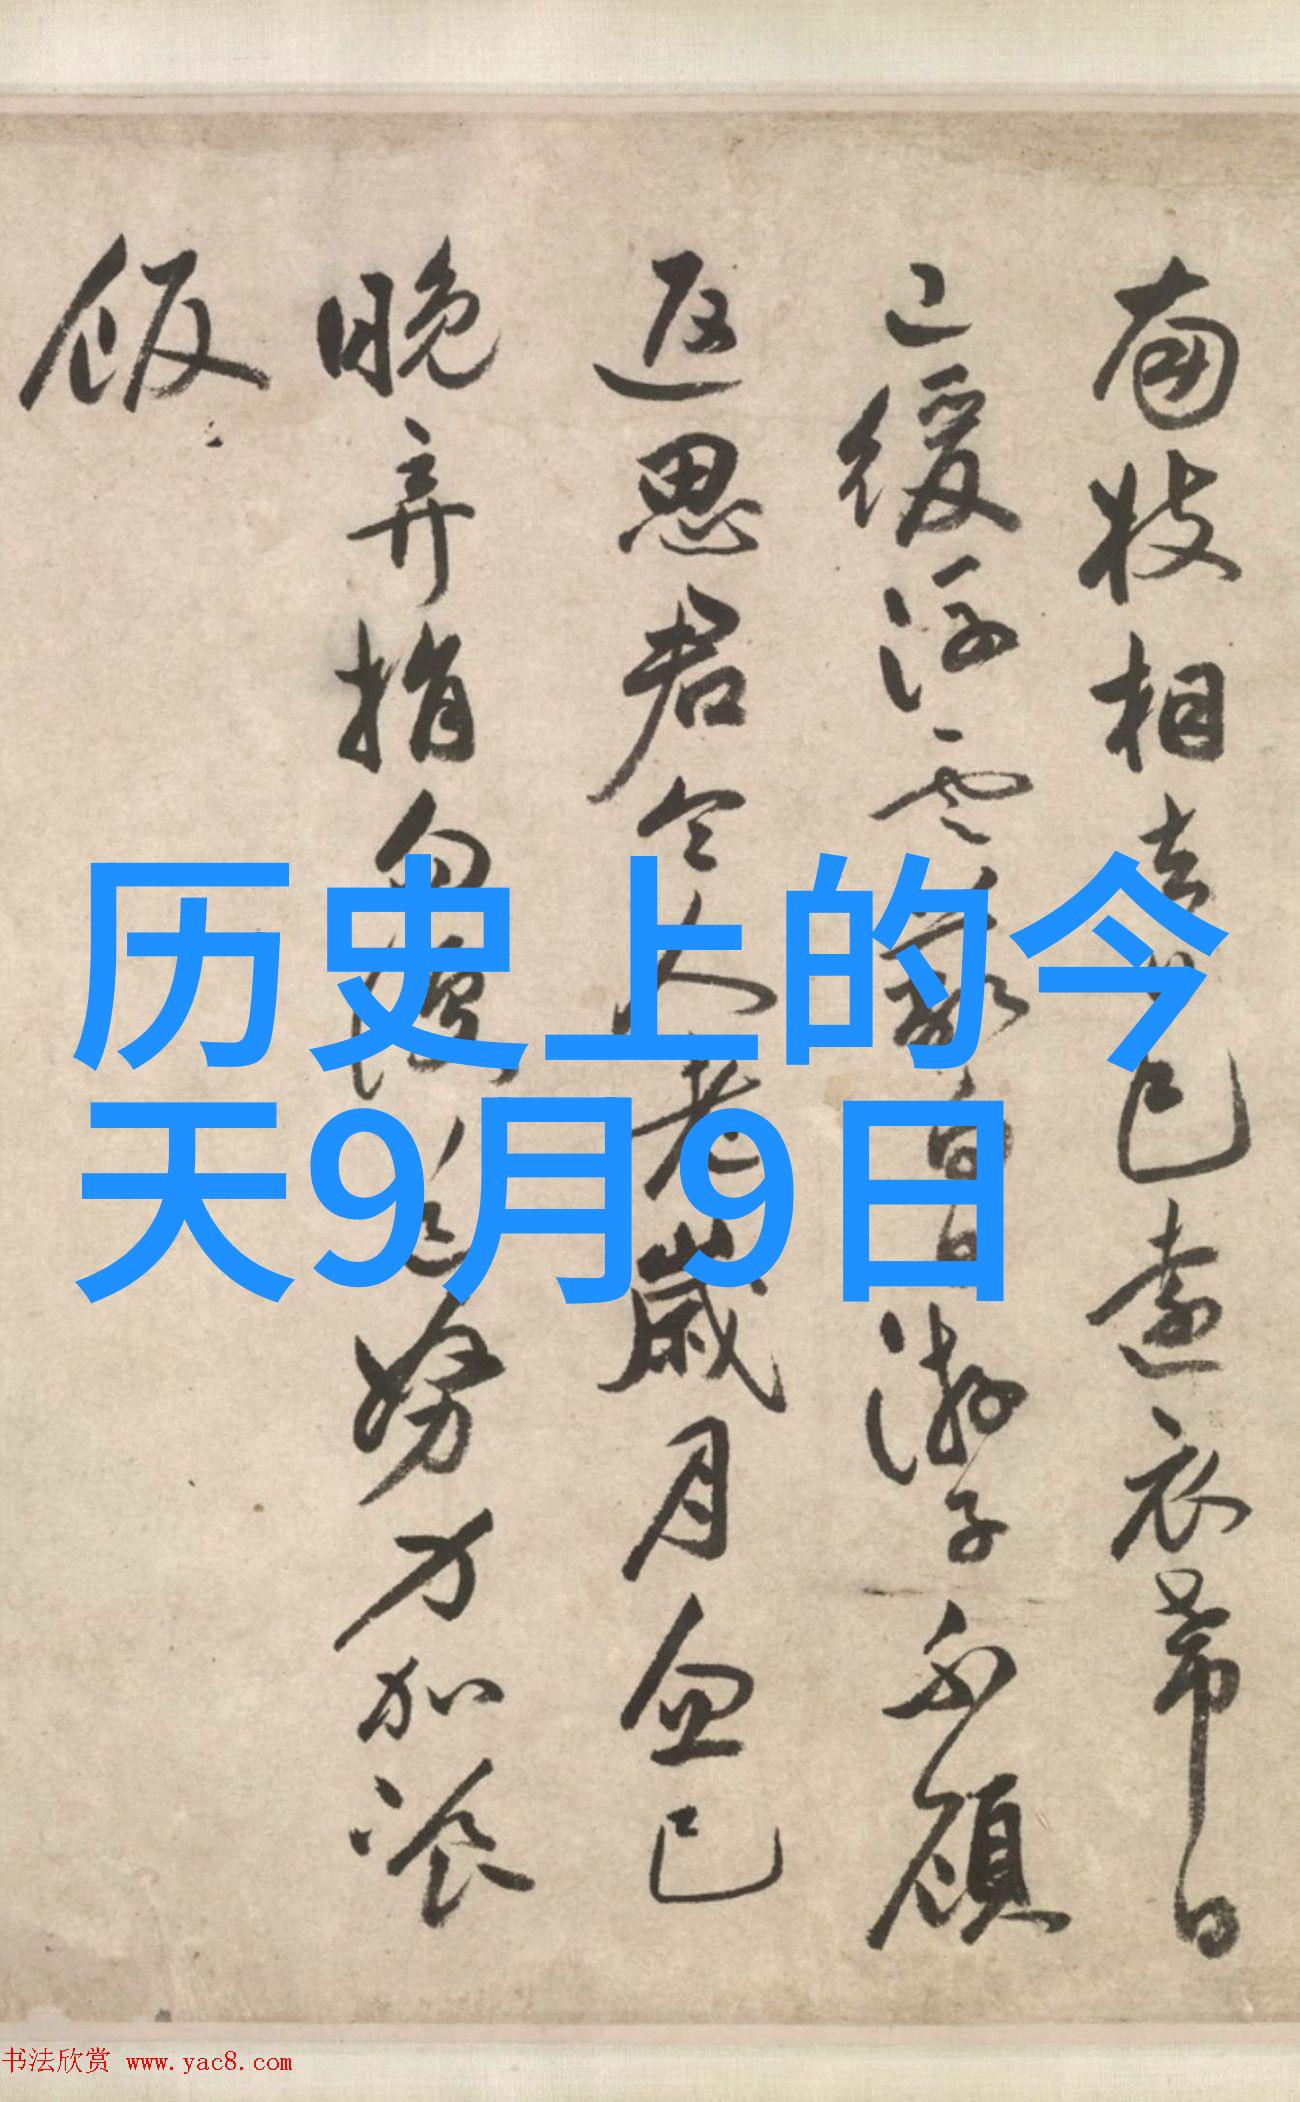 南枝相去日已遠衣帶日
已緩浮雲蔽白日游子不顧
返思君令人老歲月忽已
晚弃捐勿復道努力加飡
飯
历史上的今
天9月9日
书法欣赏 www.yac8.com